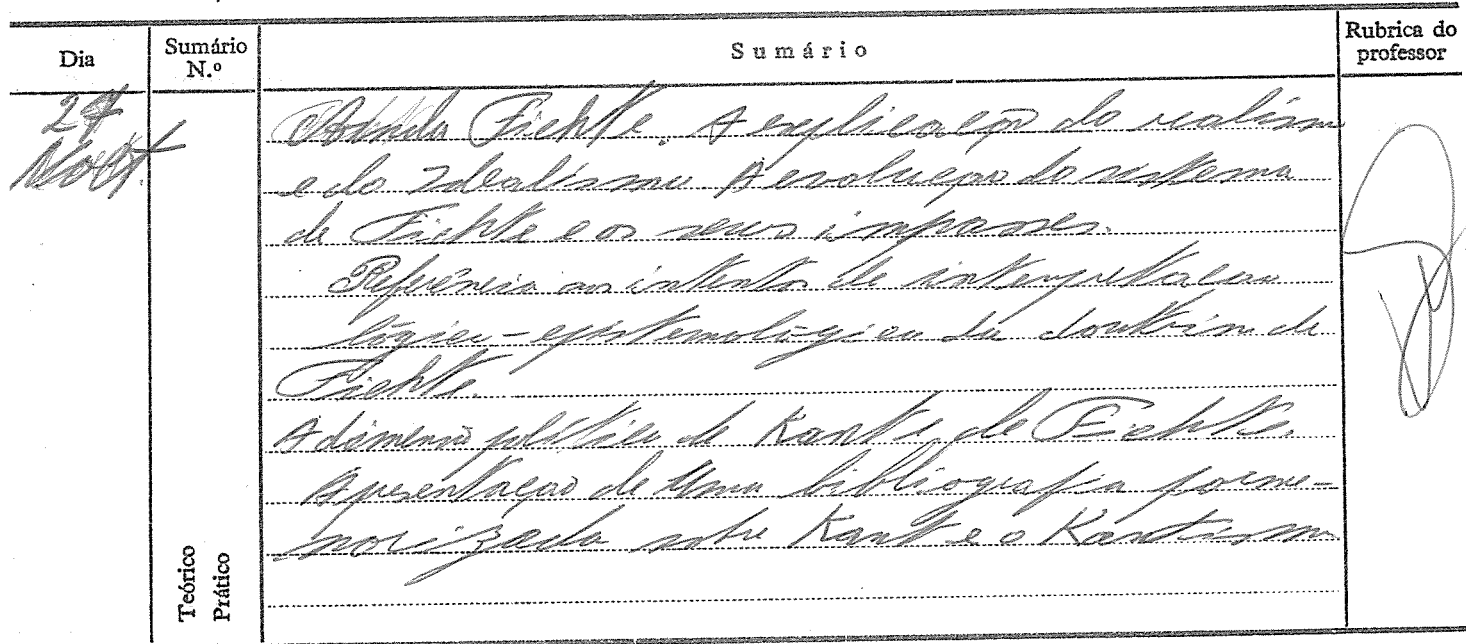 Dia
Sumário N.º
Sumário
Rubrica do professor
27
Ainda Fichte. A explicação do realismo
e do Idealismo. A evolução do sistema
de Fichte e os seus impasses.
Referência aos intentos de interpretação
lógico-epistemológica da doutrina de
Fichte.
A dimensão política de Kant e de Fichte.
Apresentação de uma bibliografia porme-
norizada sobre Kant e o Kantismo
Teórico
Prático